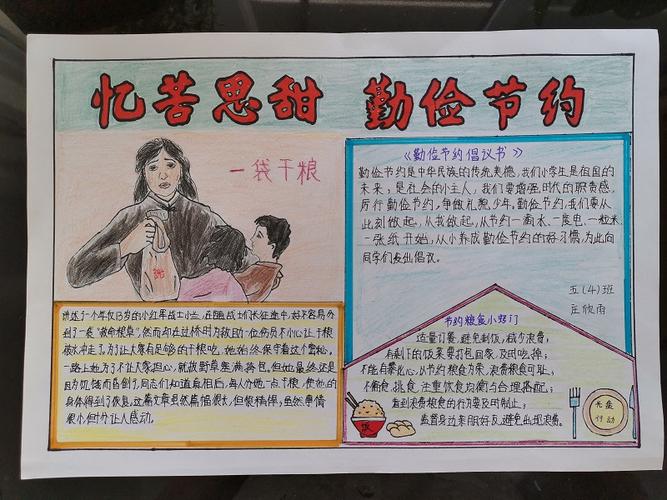 忆苦思甜 勤俭节约
一袋干粮
讲述了一个年仅13岁的小红军战士小兰,在随战士们长征途中,好不容易分
到了一袋"救命粮草",然而却在过桥时为救助一位伤员不小心让干粮
被水冲走了。为了让大家有足够的干粮吃,她始终保守着这个秘密。
一路上她为了不让大家担心,就拔野草塞满挎包,但她最终还是
因为饥饿而昏倒了,同志们知道真相后,每人分她一点干粮,使他的
身体得到了恢复。这篇文章虽然篇幅很大,但很精悍,虽然事情
很小,但十分让人感动。
《勤俭节约倡议书》
勤俭节约是中华民族的传统美德,我们小学生是祖国的
未来,是社会的小主人,我们要增强时代的职责感,
厉行勤俭节约,争做礼貌少年,勤俭节约,我们要从
此刻做起,从我做起,从节约一滴水、一度电、一粒米、
一张纸开始,从小养成勤俭节约的好习惯,为此向
同学们发出倡议。
五(4)班
庄欣雨
节约粮食小窍门
适量订餐,避免剩饭,减少浪费;
有剩下的饭菜要打包回家,及时吃掉;
不能有攀比心,以节约粮食为荣,浪费粮食可耻,
不偏食,挑食,注重饮食均衡与合理搭配;
看到浪费粮食的行为要及时制止;
监督身边亲朋好友,避免出现浪费。
饭
光盘
行动